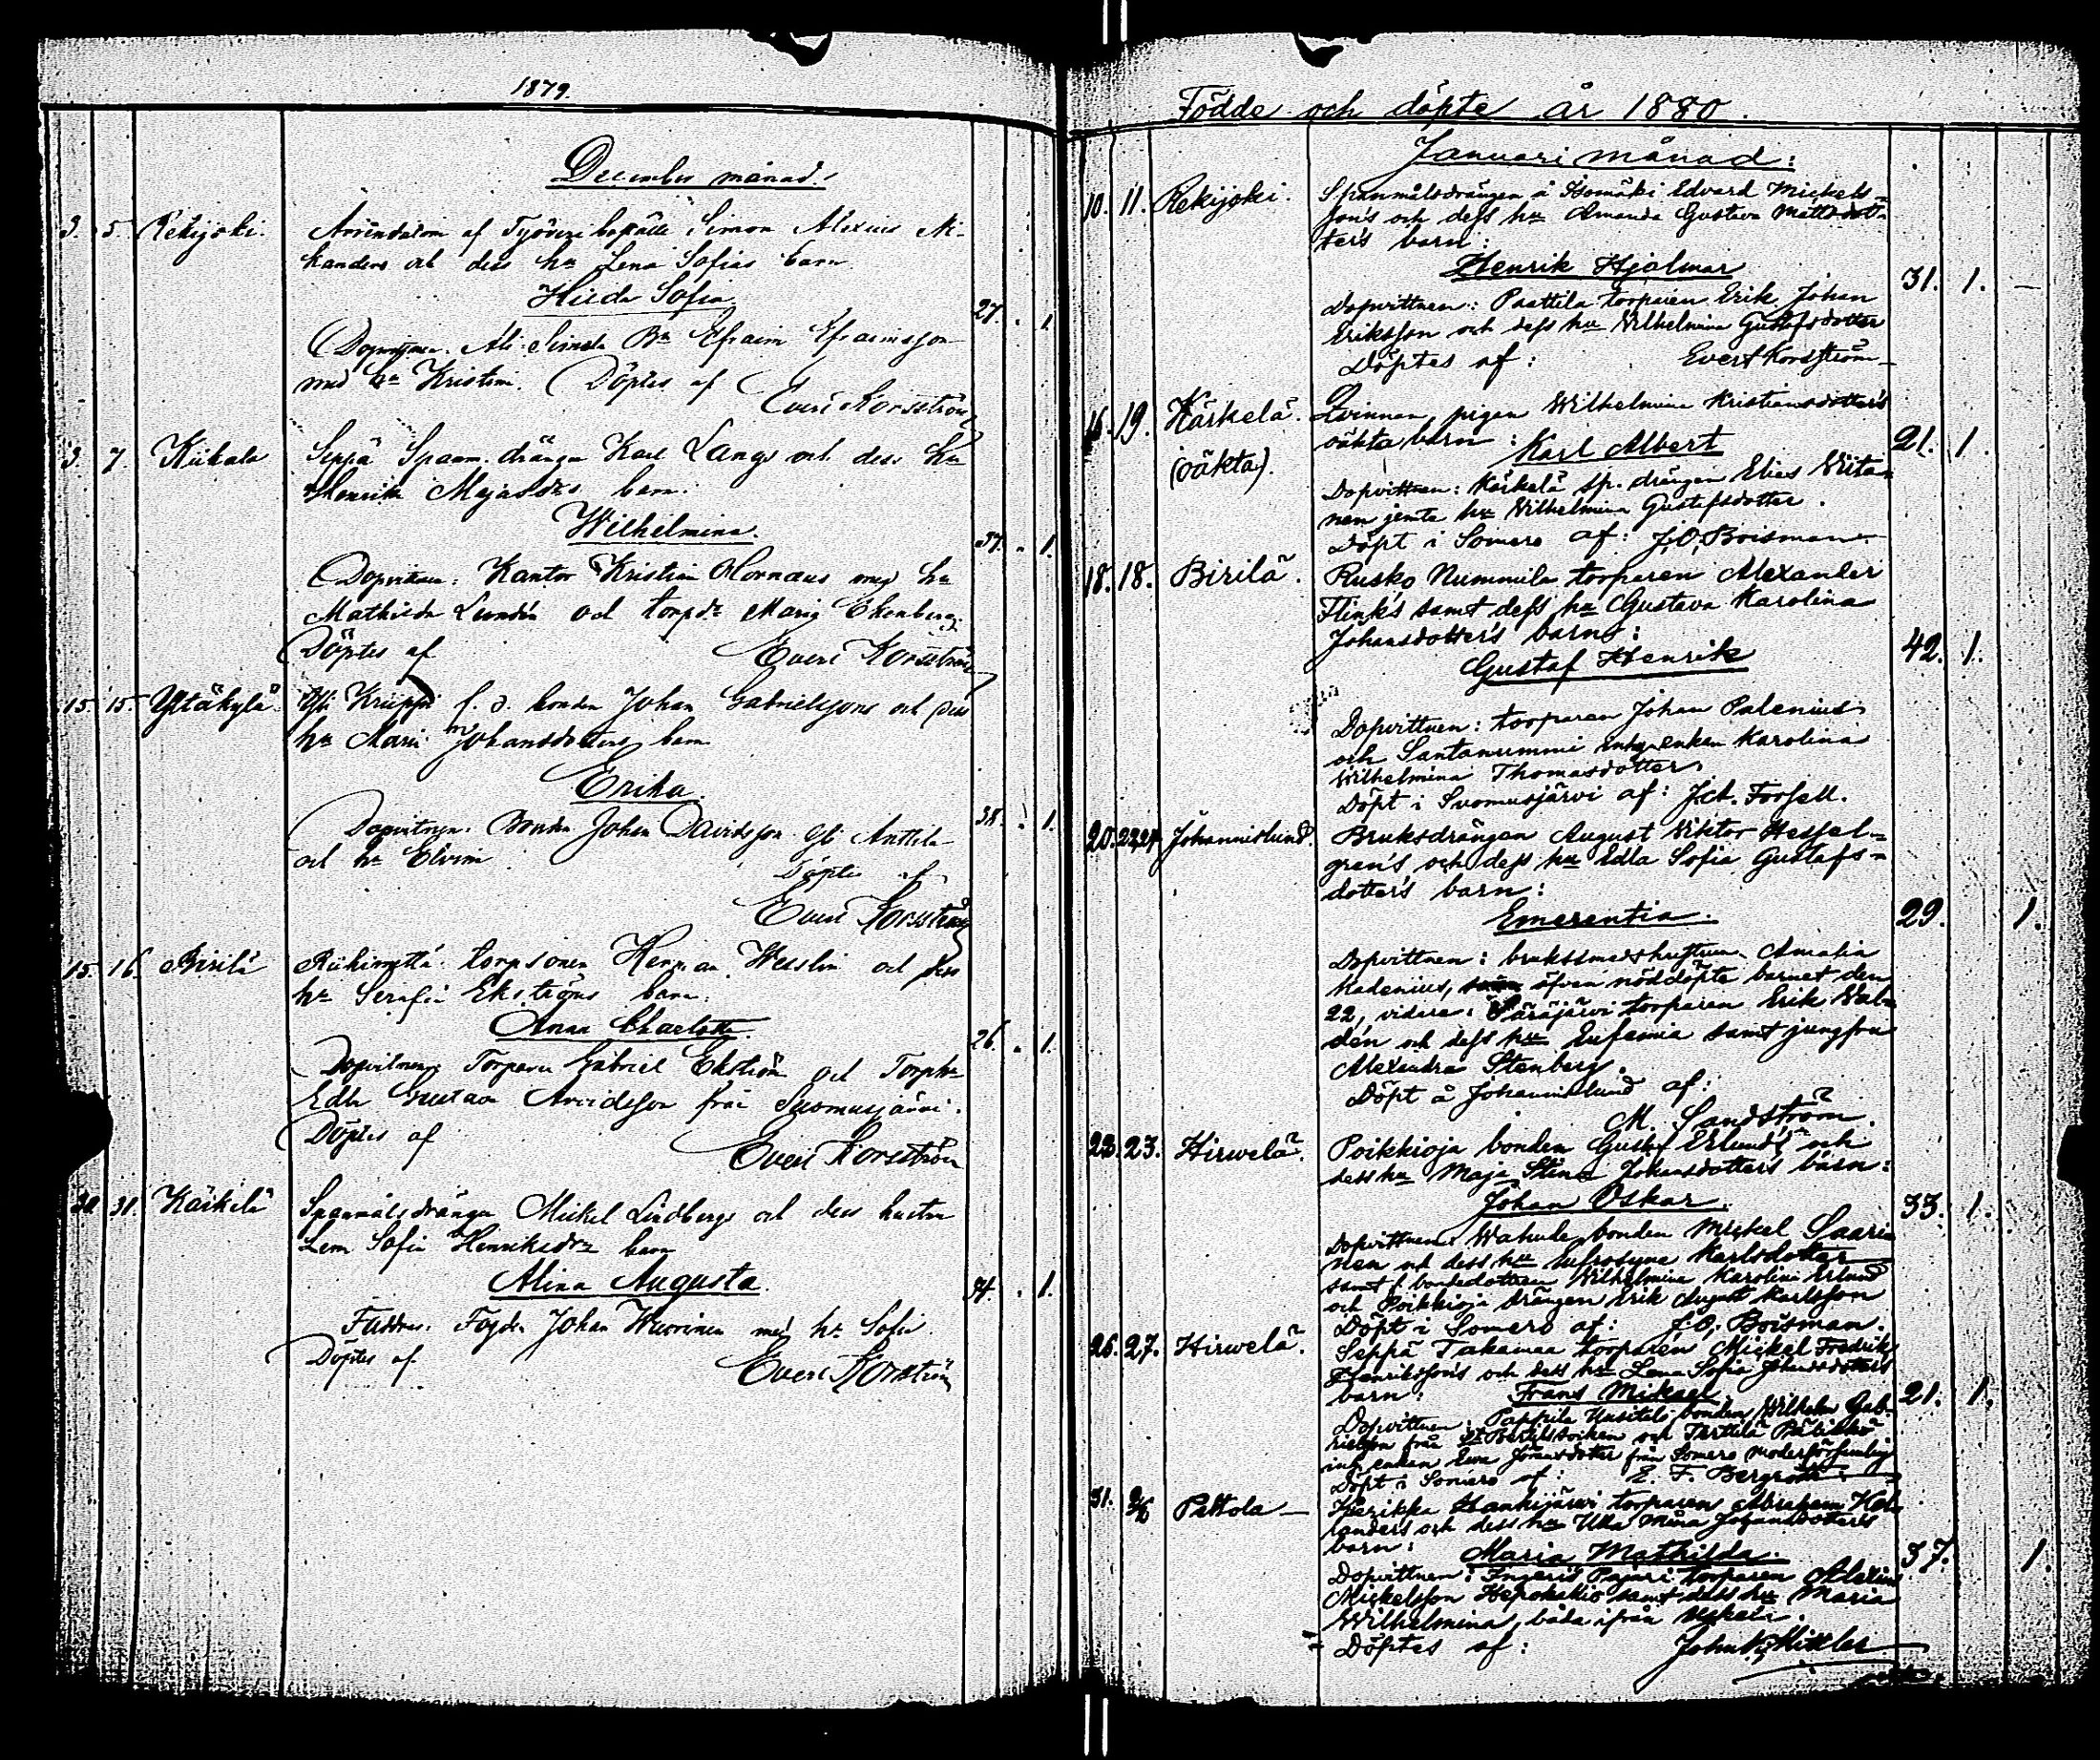 1879.
December månad.
3. 5. Rekijoki. Arrendatorn af Työvere boställe Simon Alexius Ni-
kanders och dess hu Lena Sofias barn
Hilda Sofia 27. 1.
Dopvittnen. Ali-Simola Bn Efraim Efraimsson
med hu Kristina. Döptes af
Evert Korsström
3. 7. Kiikala Seppä Spanm. drängen Karl Langs och dess hu
Henrika Majasdrs barn.
Wilhelmina. 37. 1.
Dopvittnen: Kantor Kristian Hornæus med hu
Mathilda Lundén och torpdr Maria Ekenberg.
Döptes af Evert Korsström
15. 15. Yltäkylä Yli Kruppi f. d. bonden Johan Gabrielssons och dess
hu Maria Johansdotters barn
Erika. 38. 1.
Dopvittnen. Bonden Johan Davidsson Yli Anttila
och hu Elvira
Döptes af
Evert Korsström
15. 16. Birilä Riihimettä torpsonen Herman Wesslin och dess
hu Serafia Ekströms barn.
Anna Charlotta. 26. 1.
Dopvittnen Torparen Gabriel Ekström och Torphu
Edla Gustava Arvidsson från Suomusjärvi.
Döptes af
Evert Korsström
30. 31. Kärkelä Spanmålsdrängen Mickel Lindbergs och dess hustru
Lena Sofia Henriksdrs barn
Alina Augusta. 34. 1.
Faddrar. Fogden Johan Wuorinen med hu Sofia.
Döptes af
Evert Korsström
Födde och döpte år 1880.
Januari månad:
10. 11. Rekijoki. Spanmålsdrängen å Isomäki Edvard Mickels-
son's och dess hu Amanda Gustava Mattsdot-
ter's barn:
Henrik Hjalmar 31. 1.
Dopvittnen: Paattila torparen Erik Johan
Eriksson och dess hu Wilhelmina Gustafsdotter
Döptes af: Evert Korsström
16. 19. Kärkelä. Qvinnan, pigan Wilhelmina Kristiansdotter's
(oäkta). oäkta barn: Karl Albert 21. 1.
Dopvittnen: Kärkelä sp. drängen Elias Wiita-
nen jemte hu Wilhelmina Gustafsdotter.
Döpt i Somero af: J. O. Boisman
18. 18. Birilä. Rusko Nummila torparen Alexander
Flink's samt dess hu Gustava Karolina
Johansdotter's barn:
Gustaf Henrik 42. 1.
Dopvittnen: torparen Johan Palenius
och Santanummi enkan Karolina
Wilhelmina Thomasdotter
Döpt i Suomusjärvi af: J. A. Forsell.
20. 22,24. Johannislund. Bruksdrängen August Wiktor Hessel-
gren's och dess hu Edla Sofia Gustafs-
dotter's barn:
Emerentia. 29. 1.
Dopvittnen: bruksmedshustrun Amalia
Kadenius, äfven nöddöpte barnet den
22, vidare: Säräjärvi torparen Erik Wal-
dén och dess hu Eufemia samt jungfru
Alexandra Stenberg.
Döpt å Johannislund af:
M. Sandström.
22. 23. Hirwelä. Poikkioja bonden Gustaf Erlund's och
dess hu Maja Stina Johansdotter's barn:
Johan Oskar. 33. 1.
Dopvittnen: Wahude bonden Mickel Saari-
nen och dess hu Eufrosyne Karlsdotter
samt f. bondedottren Wilhelmina Karolina Erlund
och Poikkioja drängen Erik August Karlsson
Döpt i Somero af: J. O. Boisman.
26. 27. Hirwelä. Seppä Takamaa torparen Mickel Fredrik
Henriksson's och dess hu Lena Sofia Johansdotter's
barn: Frans Mickael 21. 1.
Dopvittnen: Pappila Uusitalo bonden Wilhelm Gab-
rielsson från St Bertils socken och Terttilä
inh. enkan Eva Johansdotter från Somero moderförsamling
Döpt i Somero af: E. F. Bergroth
31. 2/6 Pettola — Hankijärvi torparen Abraham
landers och dess hu Ulla Mina Johansdotters
barn: Maria Mathilda. 37. 1.
Dopvittnen: Pajari torparen Alexius
Mickelsson samt dess hu Maria
Wilhelmina, båda ifrån Uskela.
Döptes af: